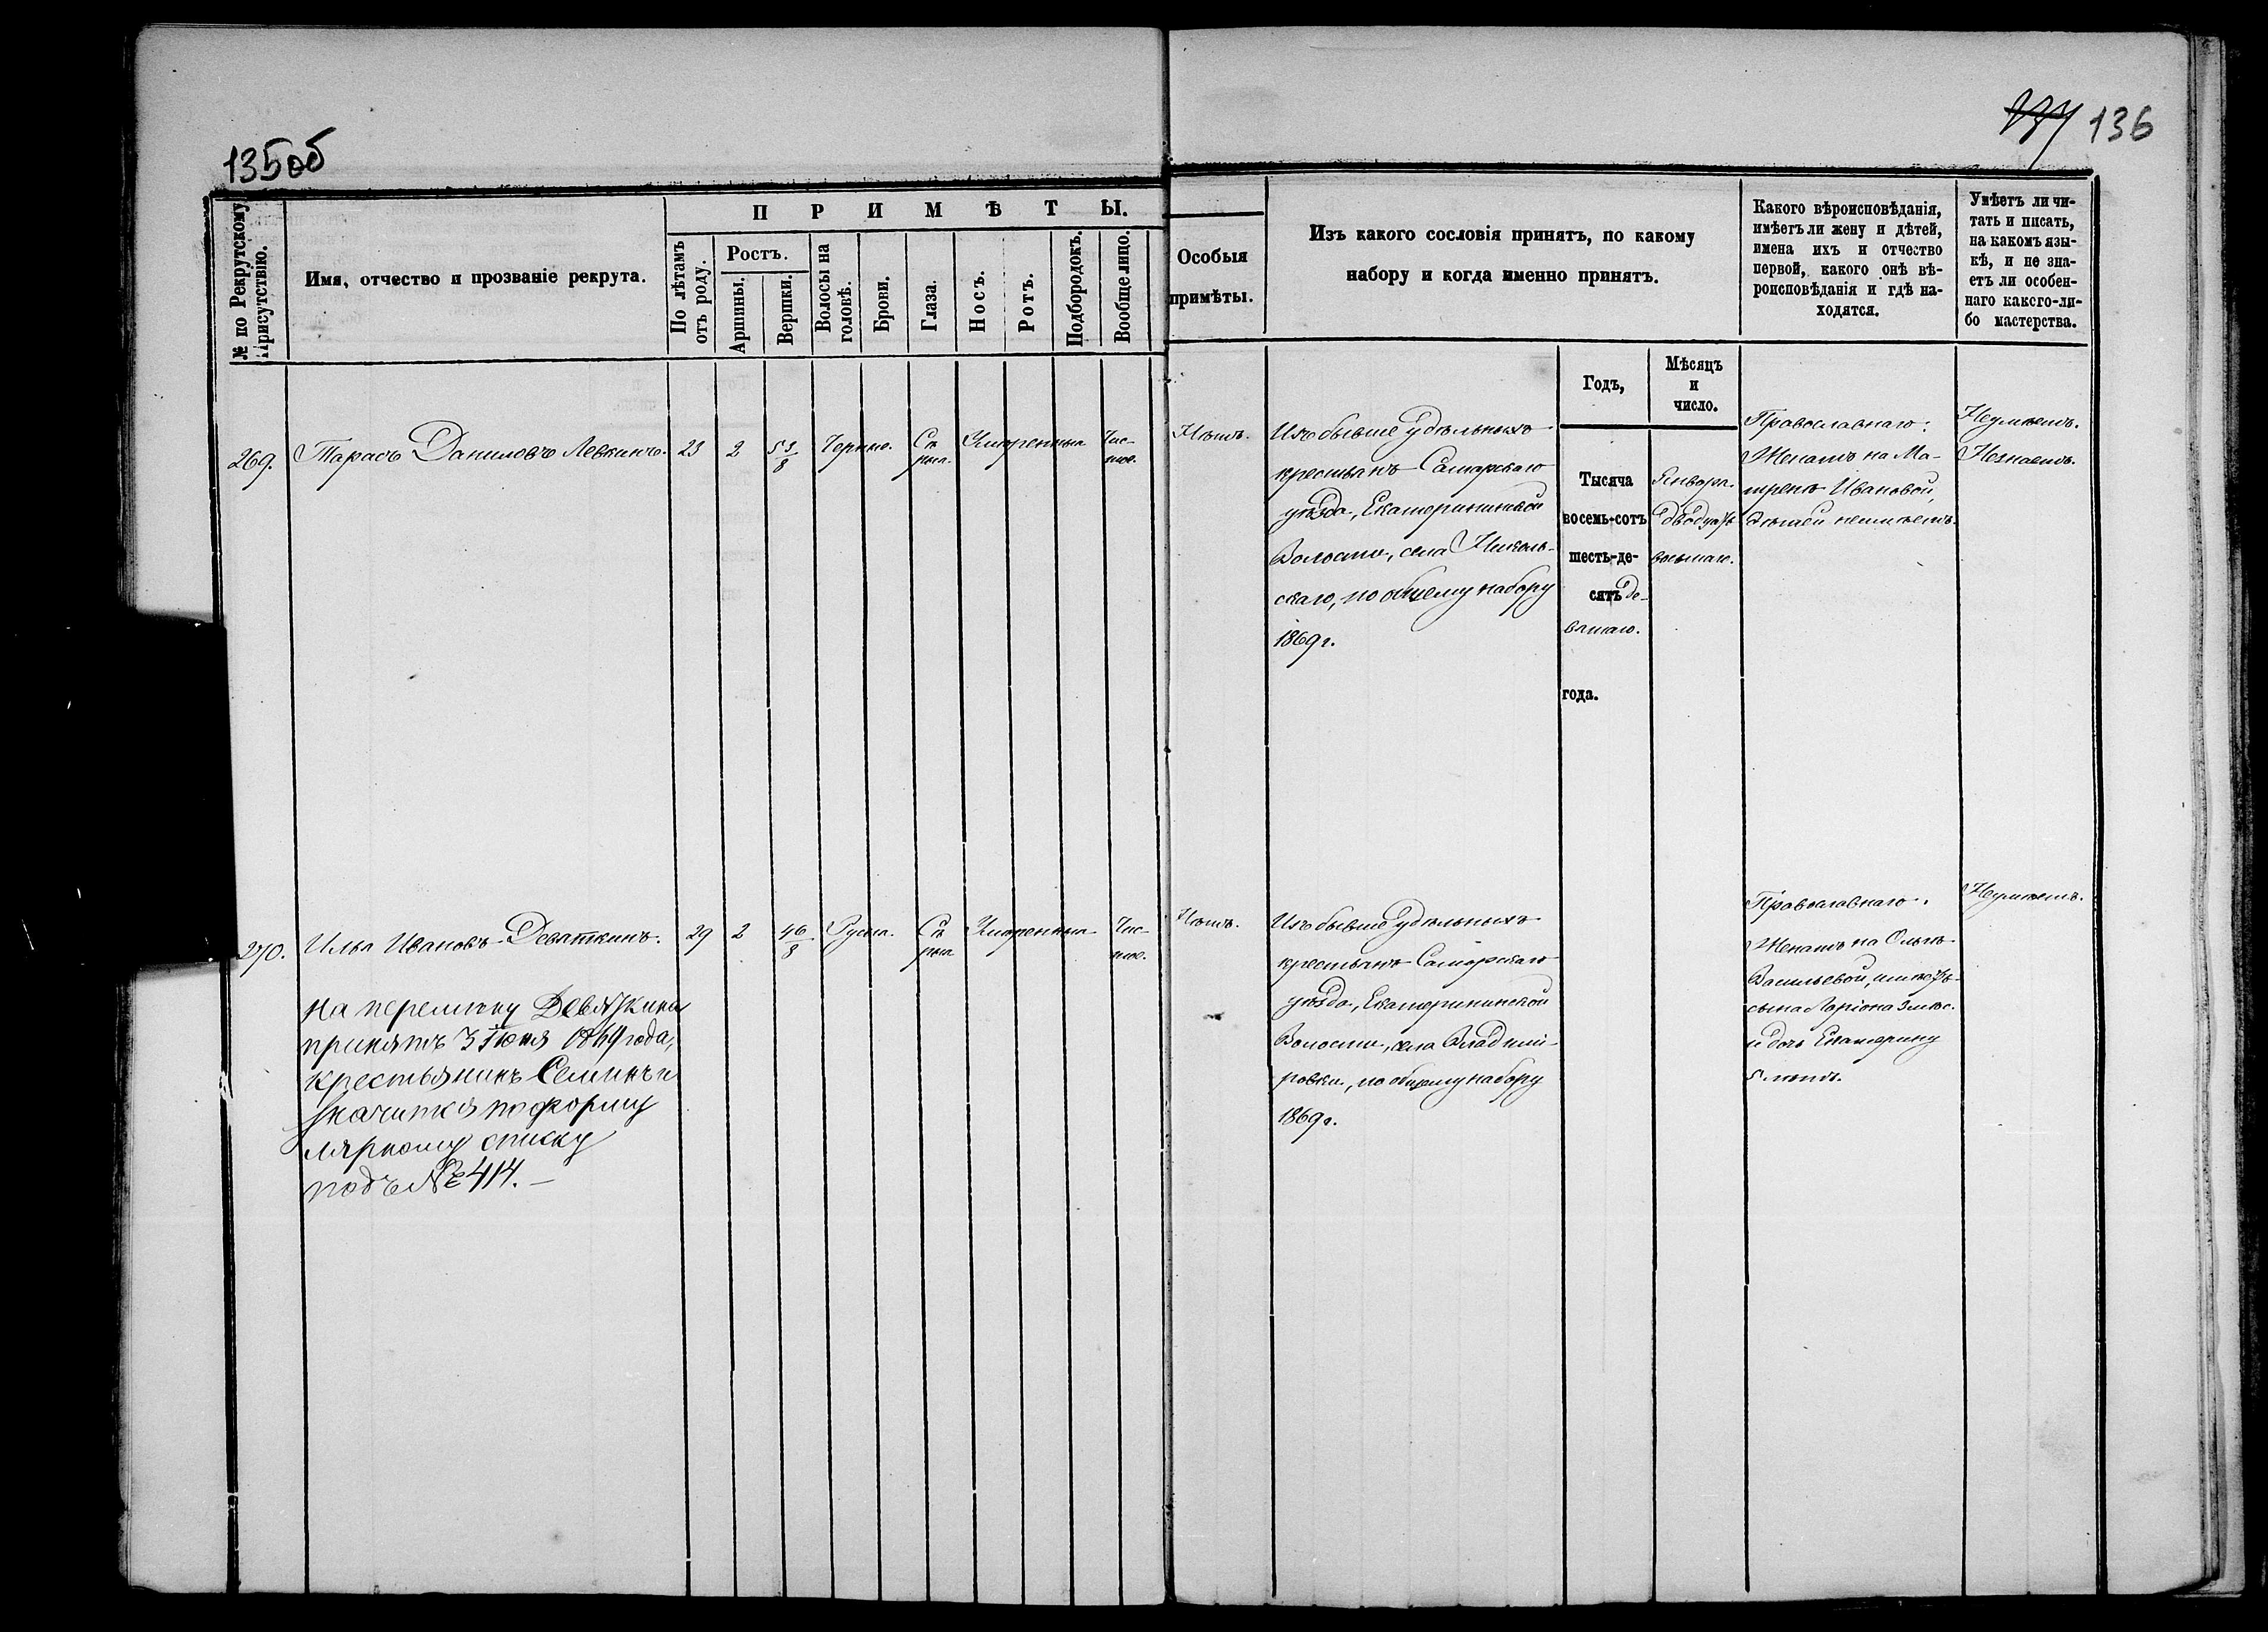 135об
137 136
№ по Рекрутскому Присутствію.
Имя, отчество и прозваніе рекрута.
ПРИМѢТЫ.
По лѣтамъ отъ роду.
Ростъ.
Аршины.
Вершки.
Волосы на головѣ.
Брови.
Глаза.
Носъ.
Ротъ.
Подбородокъ.
Вообще лицо.
Особыя
примѣты.
Изъ какого сословія принятъ, по какому
набору и когда именно принятъ.
Какого вѣроисповѣданія,
имѣетъ ли жену и дѣтей,
имена ихъ и отчество
первой, какого онѣ вѣ-
роисповѣданія и гдѣ на-
ходятся.
Умѣетъ ли чи-
тать и писать,
на какомъ язы-
кѣ, и не зна-
етъ ли особен-
наго какого-ли-
бо мастерства.
Годъ,
Мѣсяцъ
и
число.
269. Тарасъ Даниловъ Левкинъ. 23 2 5 3/8 Черные. Сѣ- Умѣренныя Чис-
рыя. тое.
Нѣтъ.
Изъ бывше Удѣльныхъ
крестьянъ Самарскаго
уѣзда, Екатерининской
Волости, села Николь-
скаго, по общему набору
1869 г.
Тысяча
восемь-сотъ
шесть-де-
сятъ де-
вятаго.
года.
Января.
двадцать
восьмаго.
Православнаго.
Женатъ на Ма-
тренѣ Ивановой,
дѣтей неимѣетъ.
Неумѣетъ.
Незнаетъ.
270. Илья Ивановъ Девяткинъ. 29 2 4 6/8 Русыя. Сѣ- Умѣренныя Чис-
рыя тое.
на перемѣну Девяткина
принятъ 3 Іюня 1869 года,
крестьянинъ Семинъ и
значится по форму
лярному списку
подъ № 414. –
Нѣтъ.
Изъ бывше Удѣльныхъ
крестьянъ Самарскаго
уѣзда, Екатерининской
Волости, села Владими-
ровки, по общему набору
1869 г.
Православнаго.
Женатъ на Ольгѣ
Васильевой, имѣетъ
сына Ларіона 3 мѣс.
и дочь Екатерину
5 лѣтъ.
Неумѣетъ.